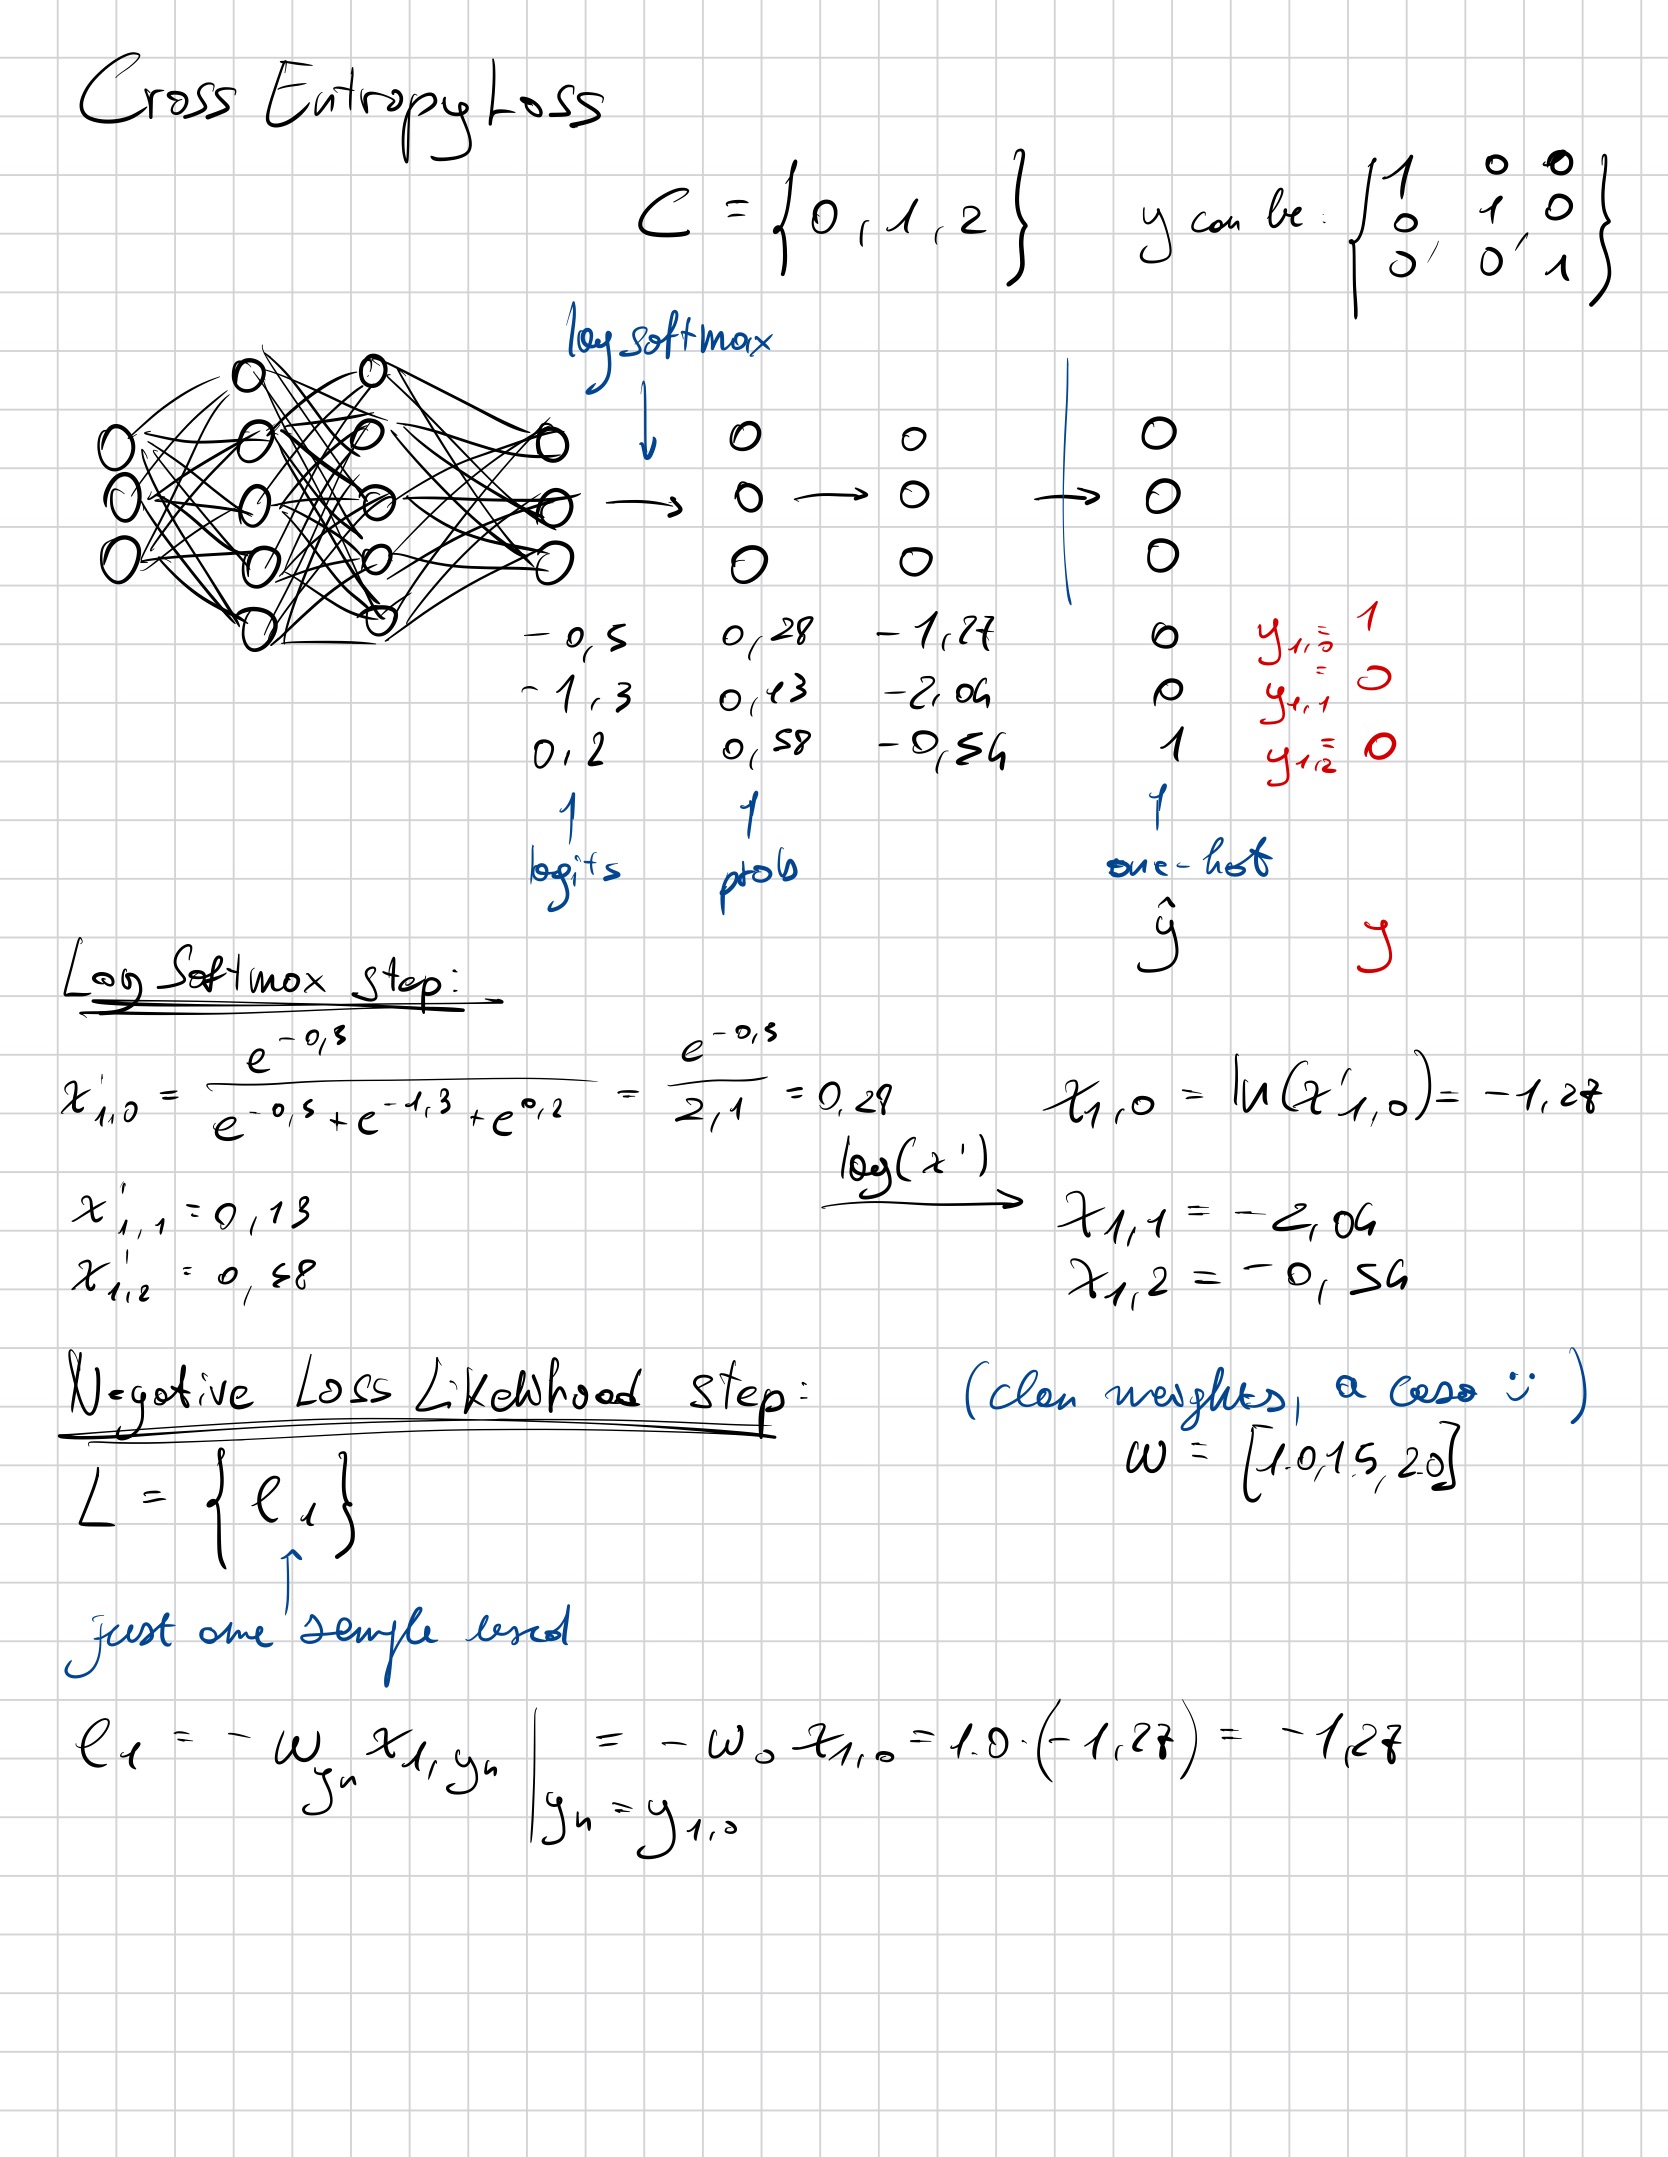 Cross Entropy Loss
C = {0, 1, 2}   y can be: {1 0 0, 0 1 0, 0 0 1}
log softmax
-0,5   0,28   -1,27   0   y1,0 = 1
-1,3   0,13   -2,04   0   y1,1 = 0
0,2   0,58   -0,54   1   y1,2 = 0
logits   prob   one-hot
ŷ   y
Log Softmax step:
x'1,0 = e^-0,5 / (e^-0,5 + e^-1,3 + e^0,2) = e^-0,5 / 2,1 = 0,28   x1,0 = ln(x'1,0) = -1,27
log(x')
x'1,1 = 0,13   x1,1 = -2,04
x'1,2 = 0,58   x1,2 = -0,54
Negative Loss Likelihood step:   (class weights, a caso :))
L = {l1}   w = [1.0, 1.5, 2.0]
just one sample used
l1 = - w_yn x1,yn | yn = y1,0 = - w0 x1,0 = 1.0 · (-1,27) = -1,27